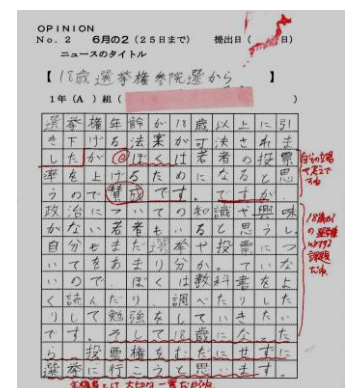 OPINION
No. 2 6月の2(25日まで) 提出日( 日)
ニュースのタイトル
【 18歳選挙権参院選から 】
1年(A)組(
選挙権年齢が18歳以上に引
き下げる法案が可決されま
したが、ぼくは若者の投票
率を上げるためになると思
うので賛成です。ですが、
政治についての知識や興味
がない若者もいると思うし、
自分もまだ選挙や投票につ
いてをあまり分かっていな
いので、ぼくは教科書をよ
く読んだり、調べたりした
りして勉強をしていきたい
です。そして18歳になった
ら、投票権をむだにせずに
選挙に行こうと思います。